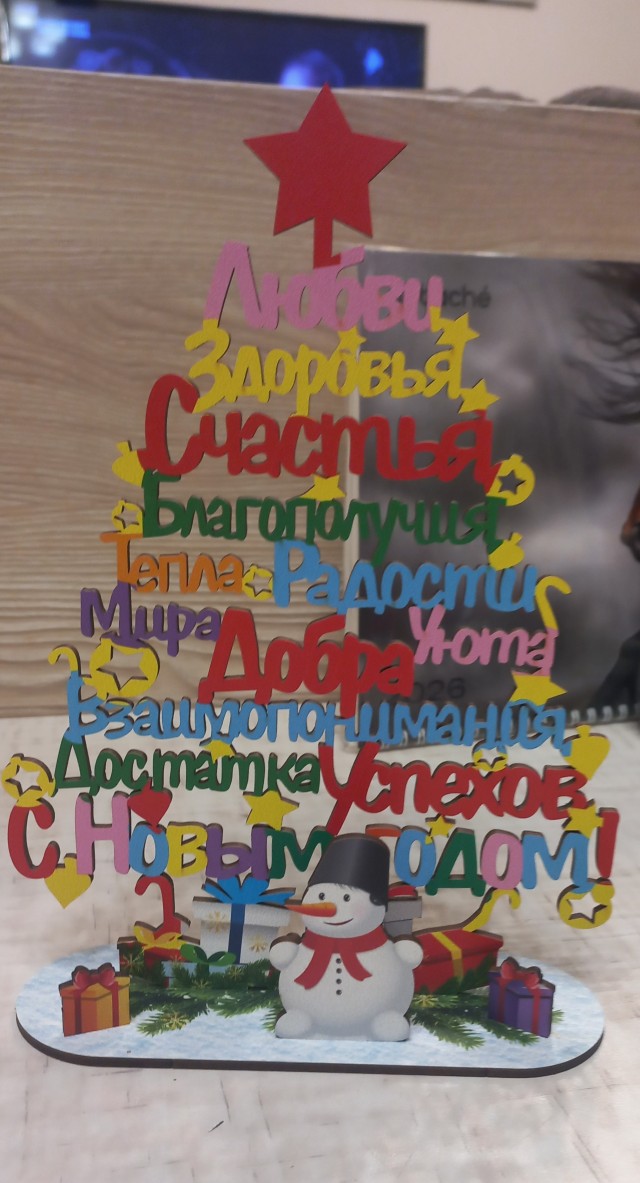 Любви
Здоровья
Счастья
Благополучия
Тепла Радости
Мира Добра Уюта
Взаимопонимания
Достатка Успехов
С Новым Годом!